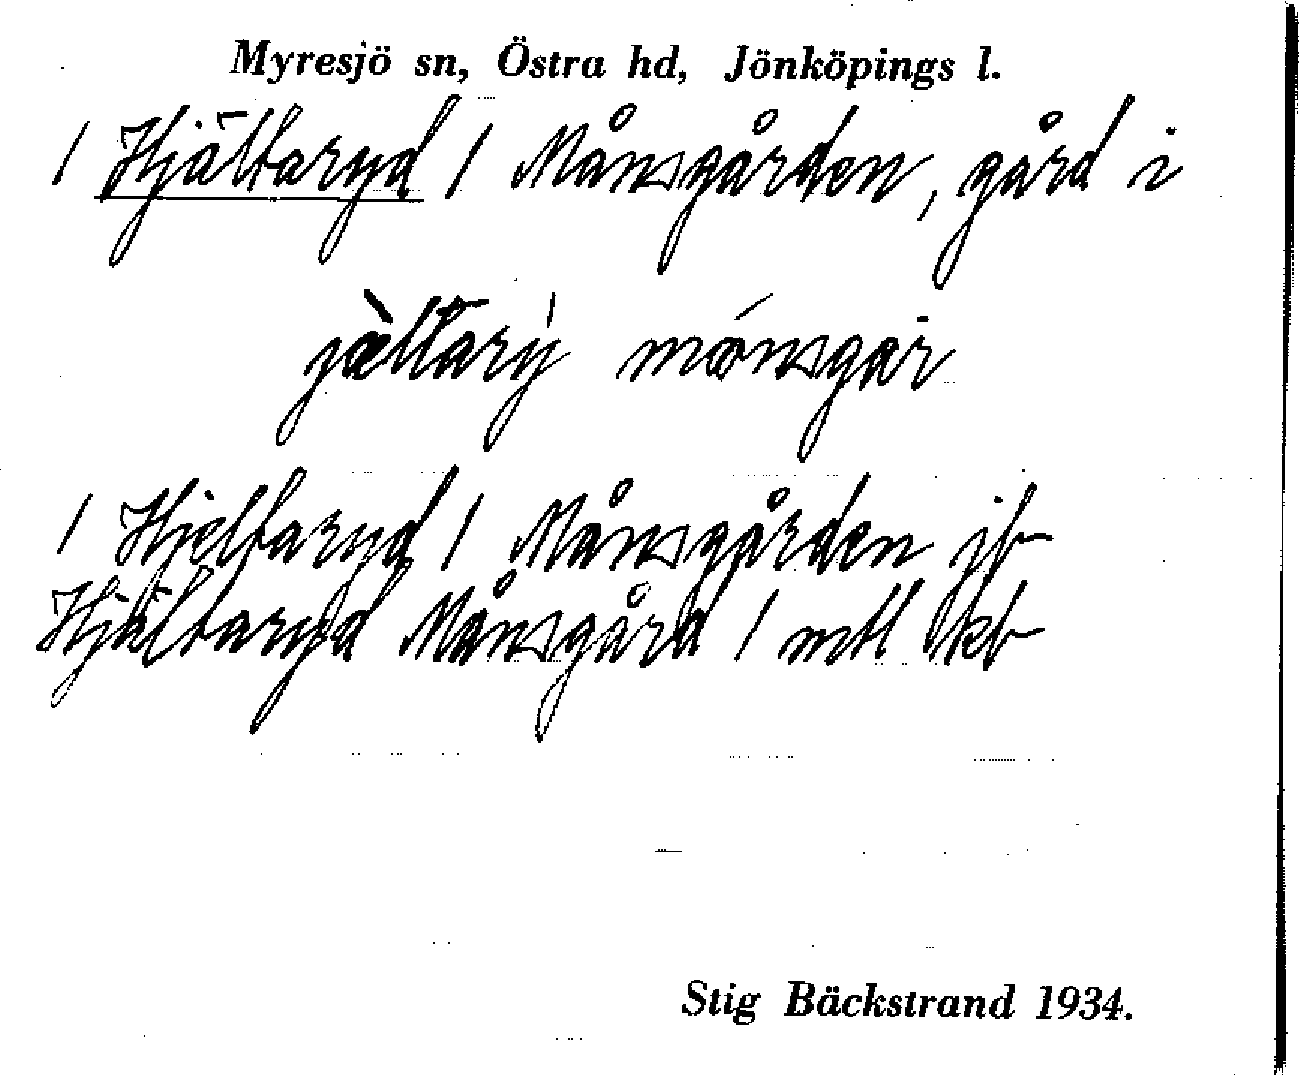 Myresjö sn, Östra hd, Jönköpings l.
/ Hjältaryd / Månsgården, gård i
jæ̀ltarỳ mónsgar
/ Hjeltaryd / Månsgården jb
Hjältaryd Månsgård / mtl kb
Stig Bäckstrand 1934.